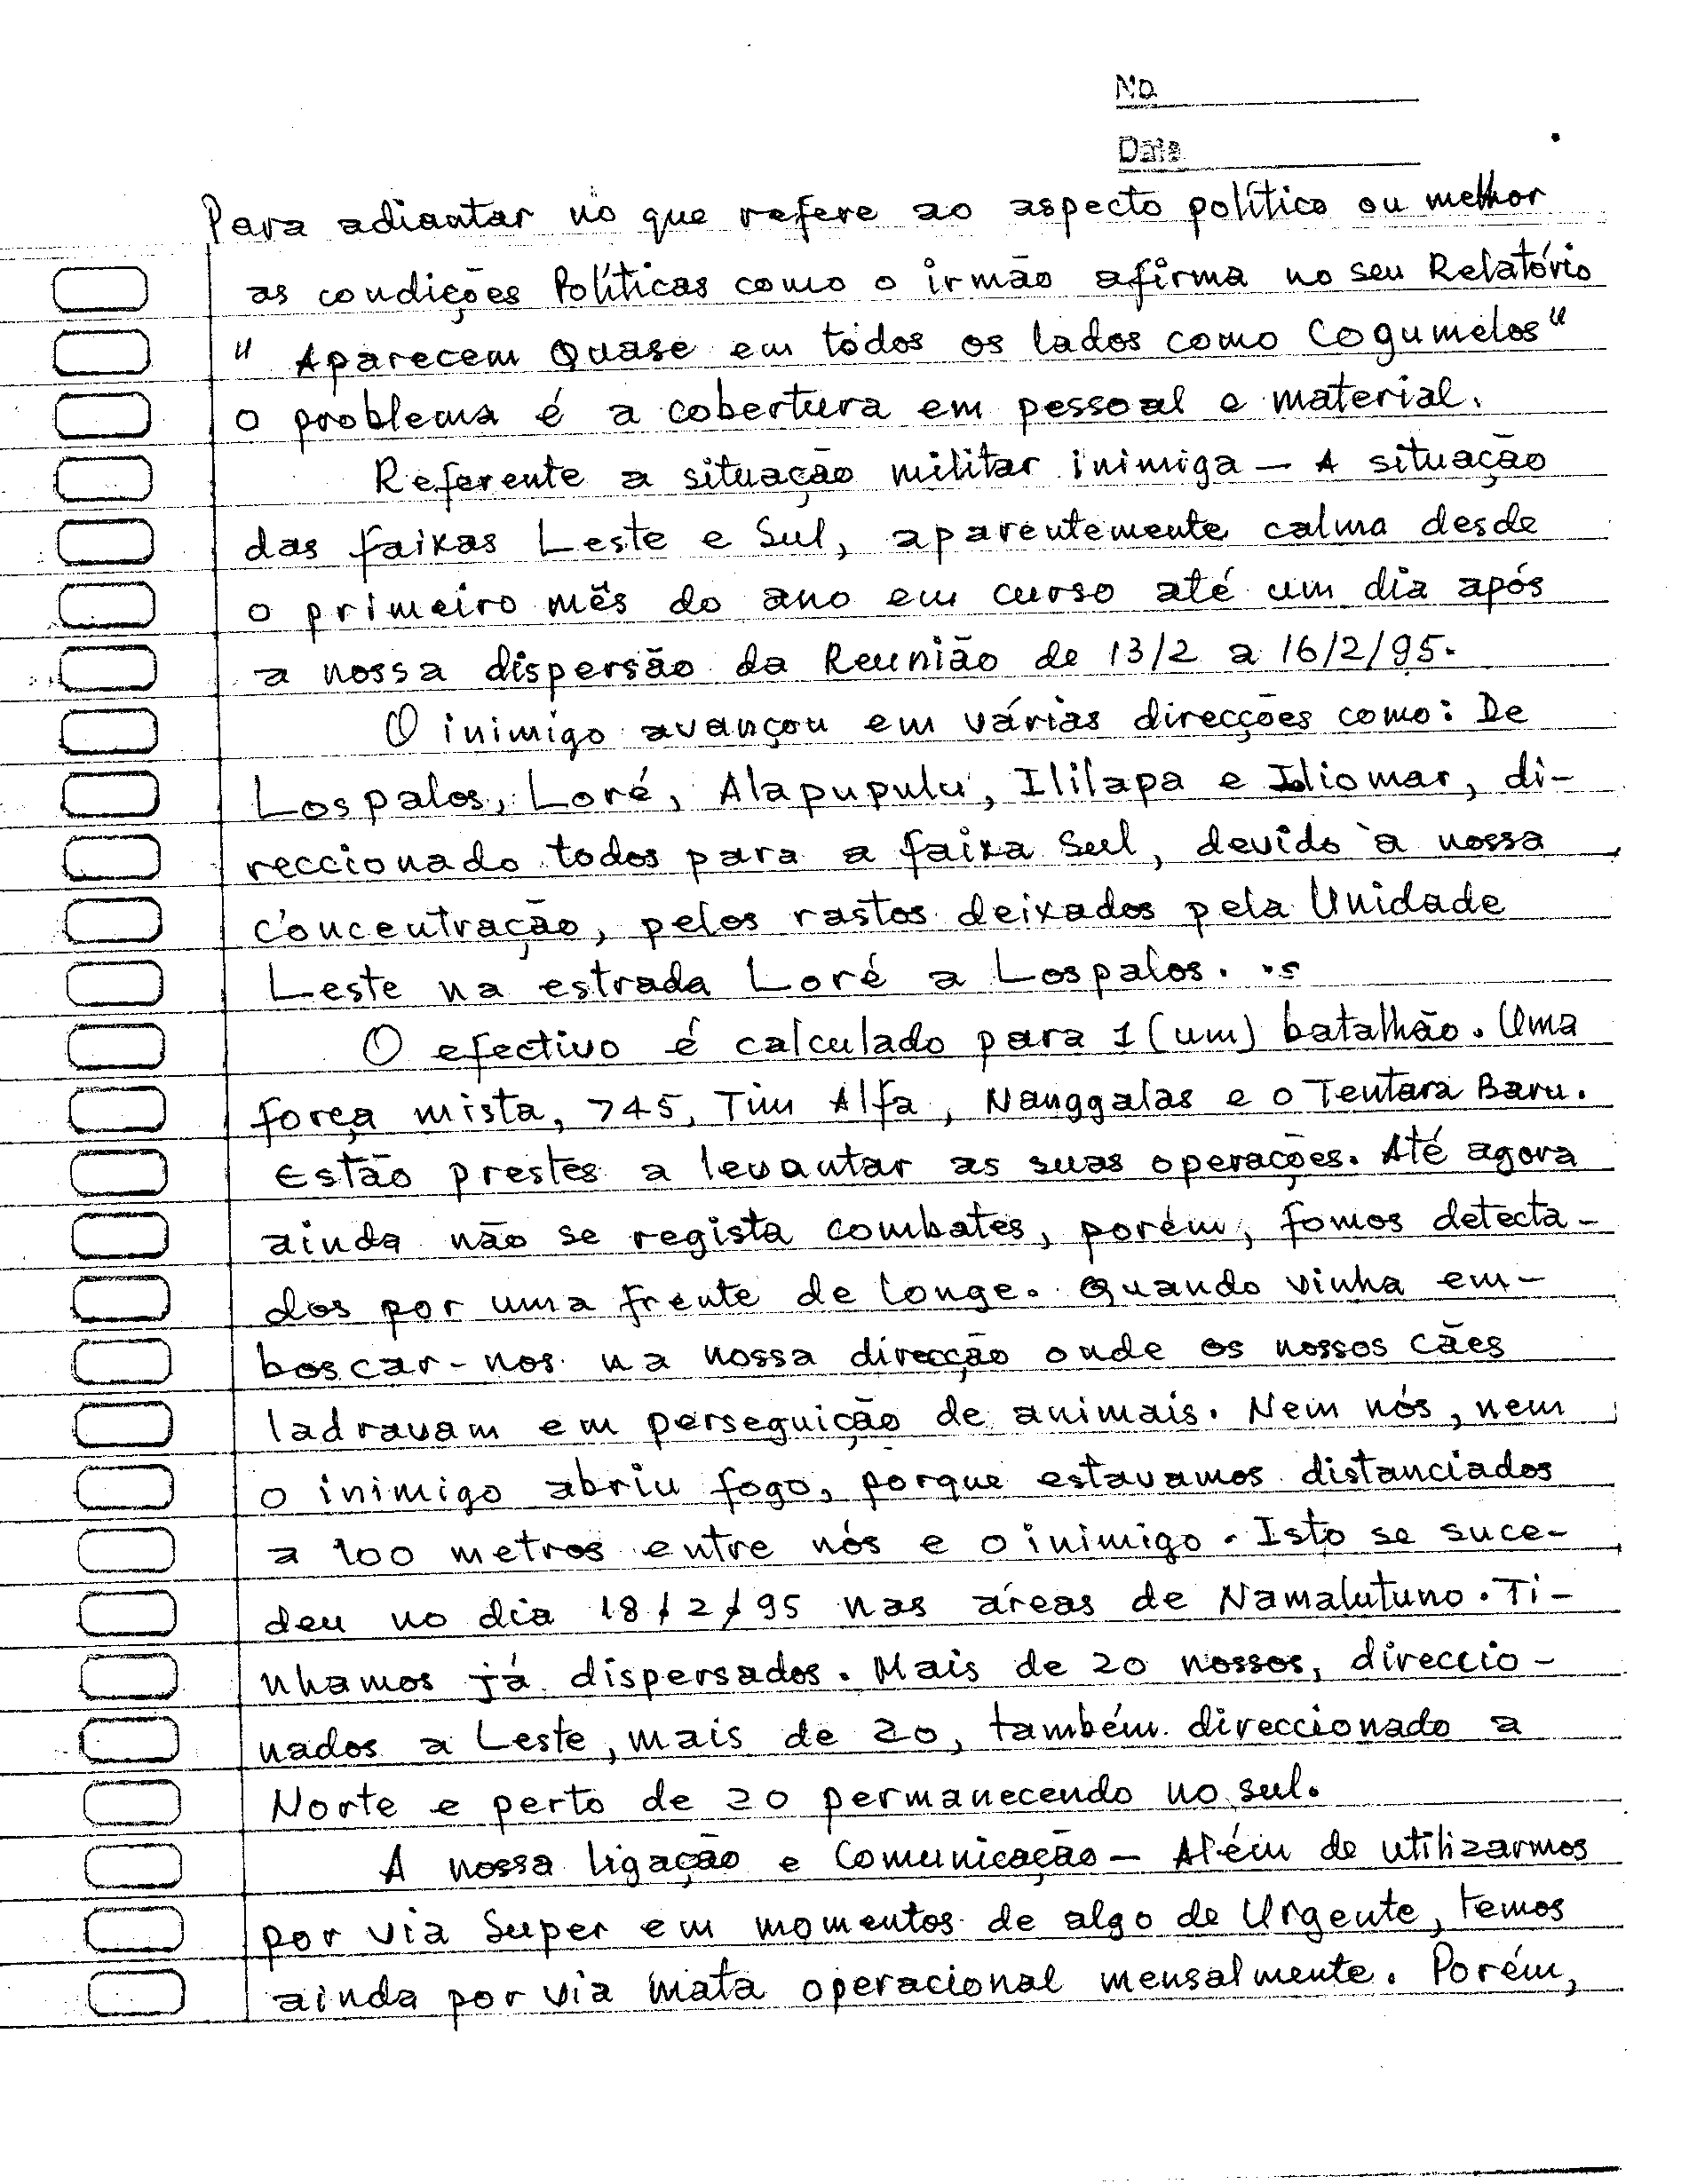 No.
Date
Para adiantar no que refere ao aspecto político ou melhor
as condições Políticas como o irmão afirma no seu Relatório
" Aparecem Quase em todos os lados como Cogumelos"
o problema é a cobertura em pessoal e material.
Referente a situação militar inimiga — A situação
das faixas Leste e Sul, aparentemente calma desde
o primeiro mês do ano em curso até um dia após
a nossa dispersão da Reunião de 13/2 a 16/2/95.
O inimigo avançou em várias direcções como: De
Lospalos, Loré, Alapupulu, Ililapa e Iliomar, di-
reccionado todos para a faixa Sul, devido à nossa
concentração, pelos rastos deixados pela Unidade
Leste na estrada Loré a Lospalos.
O efectivo é calculado para 1 (um) batalhão. Uma
força mista, 745, Tim Alfa, Nanggalas e o Tentara Baru.
Estão prestes a levantar as suas operações. Até agora
ainda não se regista combates, porém, fomos detecta-
dos por uma frente de longe. Quando vinha em-
boscar-nos na nossa direcção onde os nossos cães
ladravam em perseguição de animais. Nem nós, nem
o inimigo abriu fogo, porque estavamos distanciados
a 100 metros entre nós e o inimigo. Isto se suce-
deu no dia 18/2/95 nas áreas de Namalutuno. Ti-
nhamos já dispersados. Mais de 20 nossos, direccio-
nados a Leste, mais de 20, também direccionado a
Norte e perto de 20 permanecendo no sul.
A nossa ligação e Comunicação — Além de utilizarmos
por via Super em momentos de algo de Urgente, temos
ainda por via mata operacional mensalmente. Porém,